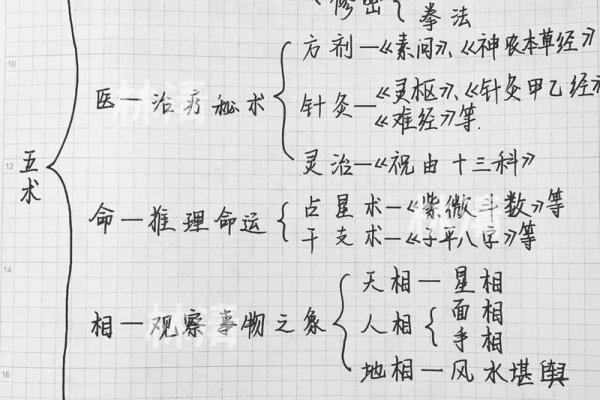 修密
拳法
方剂—《素问》、《神农本草经》
医—治疗秘术
针灸—《灵枢》、《针灸甲乙经》
《难经》等.
灵治—《祝由十三科》
五术
命—推理命运
占星术—《紫微斗数》等
干支术—《子平八字》等
天相—星相
相—观察事物之象
人相
面相
手相
地相—风水堪舆
10
12
14
16